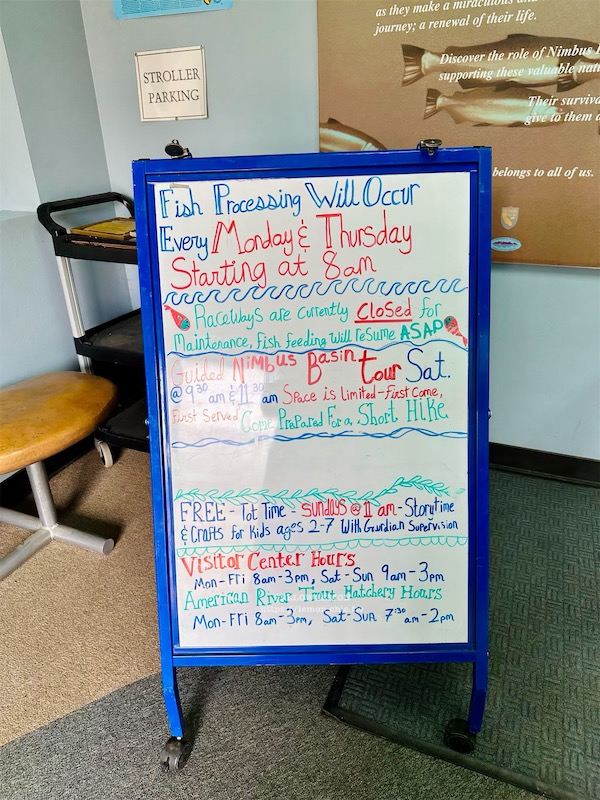 as they make a miraculous and
journey; a renewal of their life.
Discover the role of Nimbus
supporting these valuable nat
Their surviva
give to them a
belongs to all of us.
STROLLER
PARKING
Fish Processing Will Occur
Every Monday & Thursday
Starting at 8am
RaceWays are currently Closed for
Maintenance, Fish feeding Will resume ASAP
Guided Nimbus Basin tour Sat.
@ 9:30 am & 11:30 am Space is Limited-First Come,
First Served Come Prepared For a Short Hike
FREE - Tot Time - Sundays @ 11 am - Storytime
& Crafts for Kids ages 2-7 With Gurdian Supervision
Visitor Center Hours
Mon-Fri 8am-3pm, Sat-Sun 9am-3pm
American River Trout Hatchery Hours
Mon-Fri 8am-3pm, Sat-Sun 7:30 am-2pm